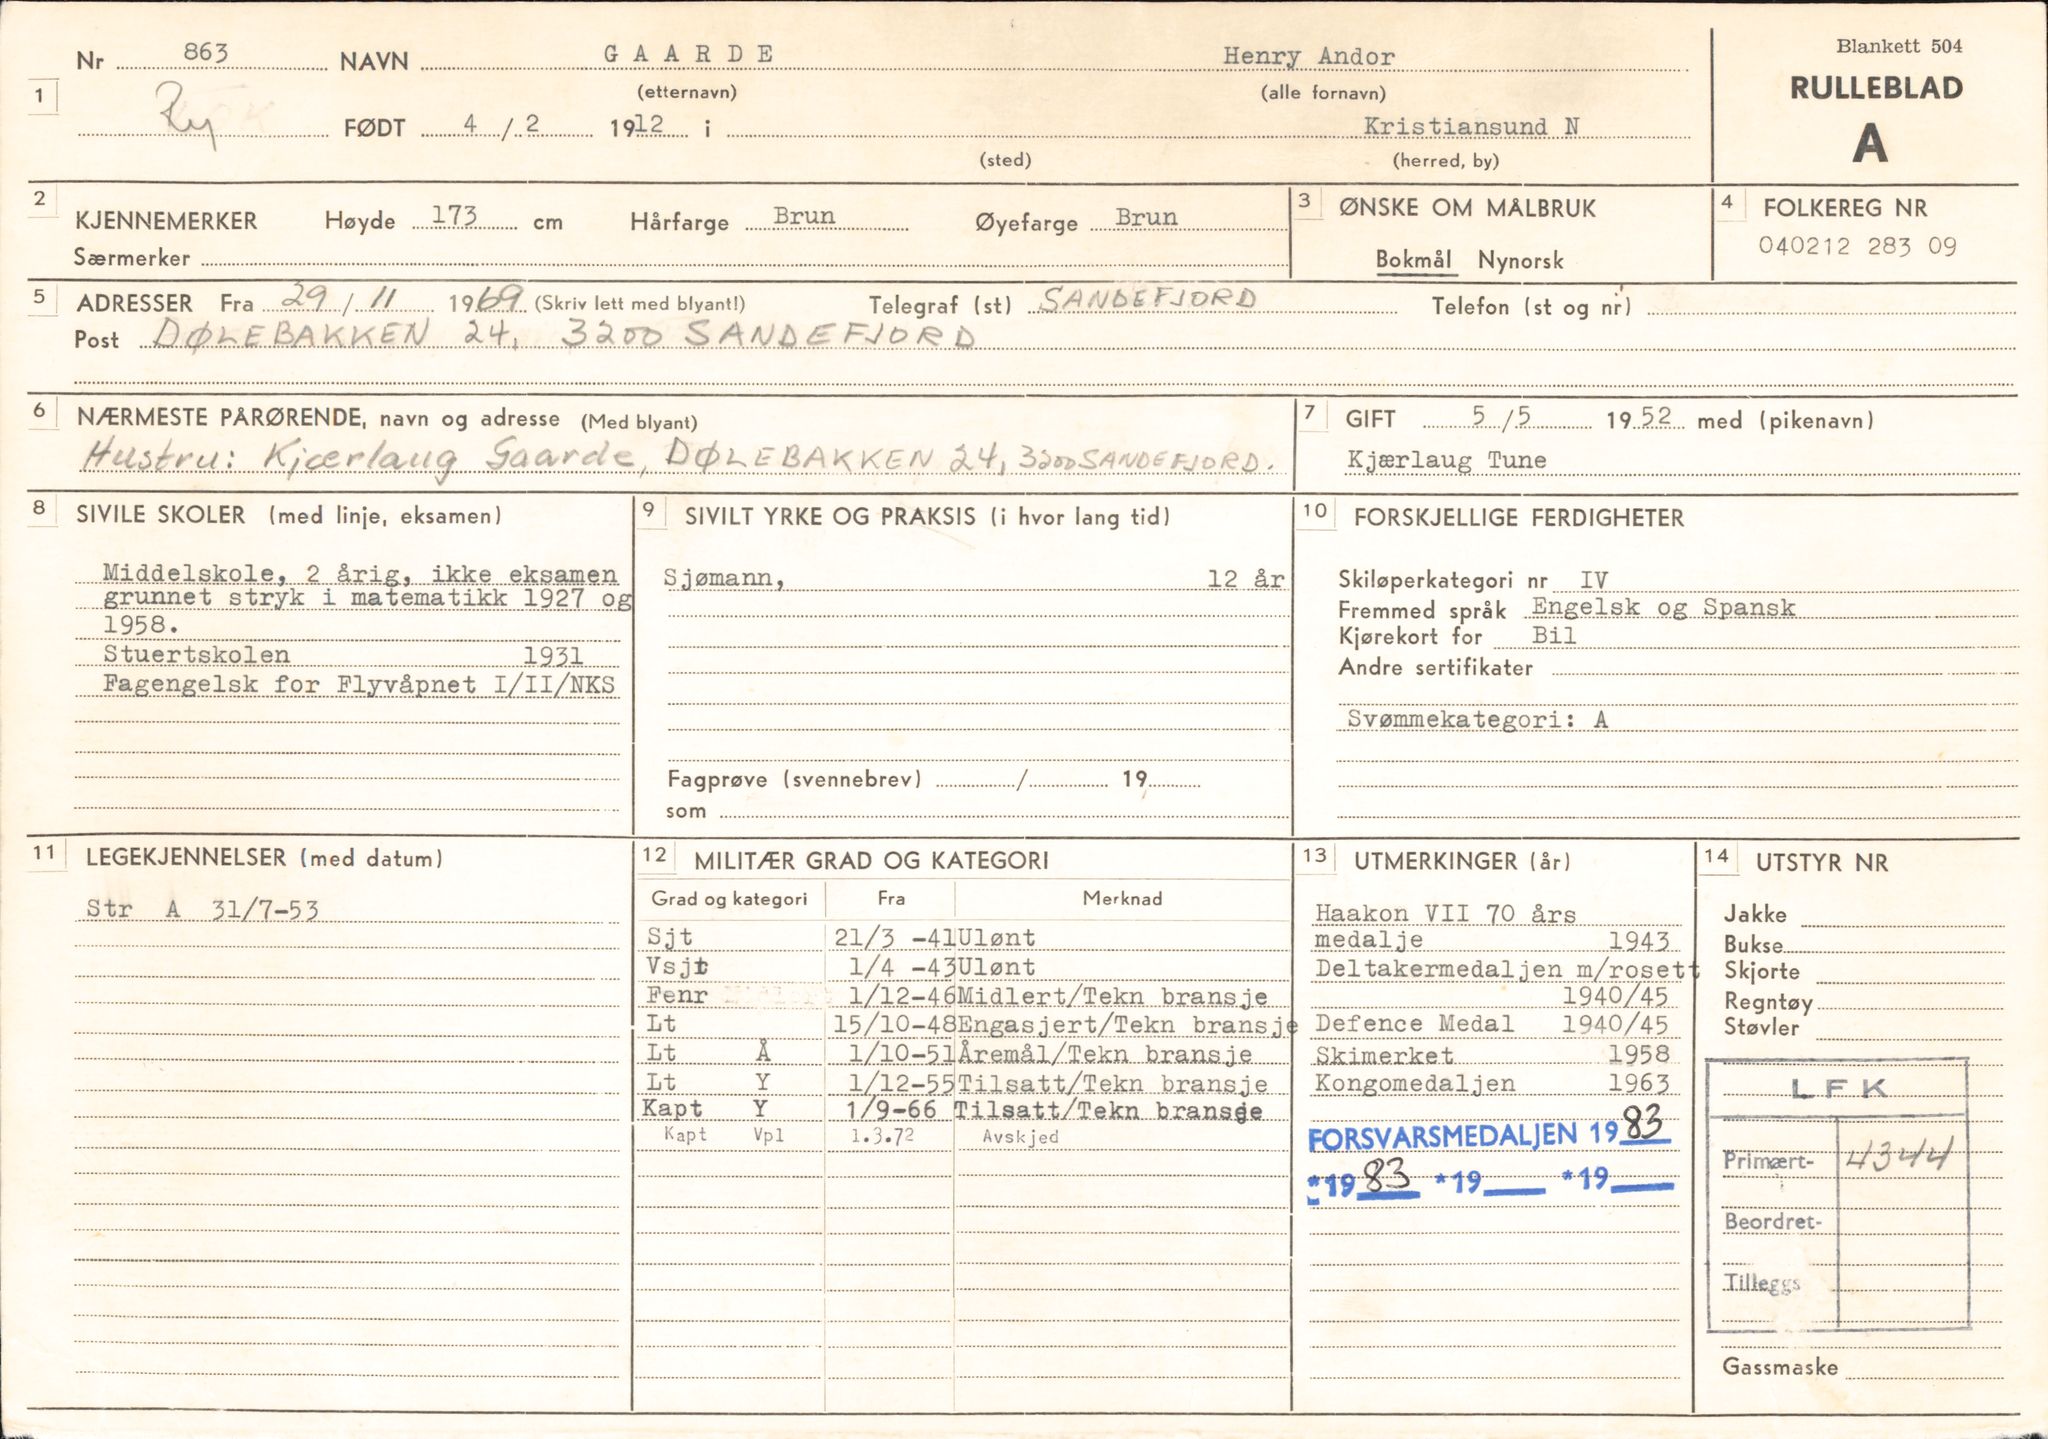 Blankett 504
Nr 863 NAVN GAARDE Henry Andor
(etternavn) (alle fornavn)
RULLEBLAD
A
1
Ry FØDT 4 / 2 1912 i Kristiansund N
(sted) (herred, by)
2 KJENNEMERKER Høyde 173 cm Hårfarge Brun Øyefarge Brun
Særmerker
3 ØNSKE OM MÅLBRUK
Bokmål Nynorsk
4 FOLKEREG NR
040212 283 09
5 ADRESSER Fra 29 / 11 1969 (Skriv lett med blyant!) Telegraf (st) SANDEFJORD Telefon (st og nr)
Post DØLEBAKKEN 24, 3200 SANDEFJORD
6 NÆRMESTE PÅRØRENDE, navn og adresse (Med blyant)
Hustru: Kjærlaug Gaarde, DØLEBAKKEN 24, 3200 SANDEFJORD.
7 GIFT 5 / 5 1952 med (pikenavn)
Kjærlaug Tune
8 SIVILE SKOLER (med linje, eksamen)
Middelskole, 2 årig, ikke eksamen
grunnet stryk i matematikk 1927 og
1958.
Stuertskolen 1931
Fagengelsk for Flyvåpnet I/II/NKS
9 SIVILT YRKE OG PRAKSIS (i hvor lang tid)
Sjømann, 12 år
Fagprøve (svennebrev) / 19
som
10 FORSKJELLIGE FERDIGHETER
Skiløperkategori nr IV
Fremmed språk Engelsk og Spansk
Kjørekort for Bil
Andre sertifikater
Svømmekategori: A
11 LEGEKJENNELSER (med datum)
Str A 31/7-53
12 MILITÆR GRAD OG KATEGORI
Grad og kategori Fra Merknad
Sjt 21/3 -41 Ulønt
Vsjt 1/4 -43 Ulønt
Fenr 1/12-46 Midlert/Tekn bransje
Lt 15/10-48 Engasjert/Tekn bransje
Lt Å 1/10-51 Åremål/Tekn bransje
Lt Y 1/12-55 Tilsatt/Tekn bransje
Kapt Y 1/9-66 Tilsatt/Tekn bransje
Kapt Vpl 1.3.72 Avskjed
13 UTMERKINGER (år)
Haakon VII 70 års
medalje 1943
Deltakermedaljen m/rosett
1940/45
Defence Medal 1940/45
Skimerket 1958
Kongomedaljen 1963
FORSVARSMEDALJEN 1983
*1983 *19 *19
14 UTSTYR NR
Jakke
Bukse
Skjorte
Regntøy
Støvler
LFK
Primært- 4344
Beordret-
Tilleggs
Gassmaske